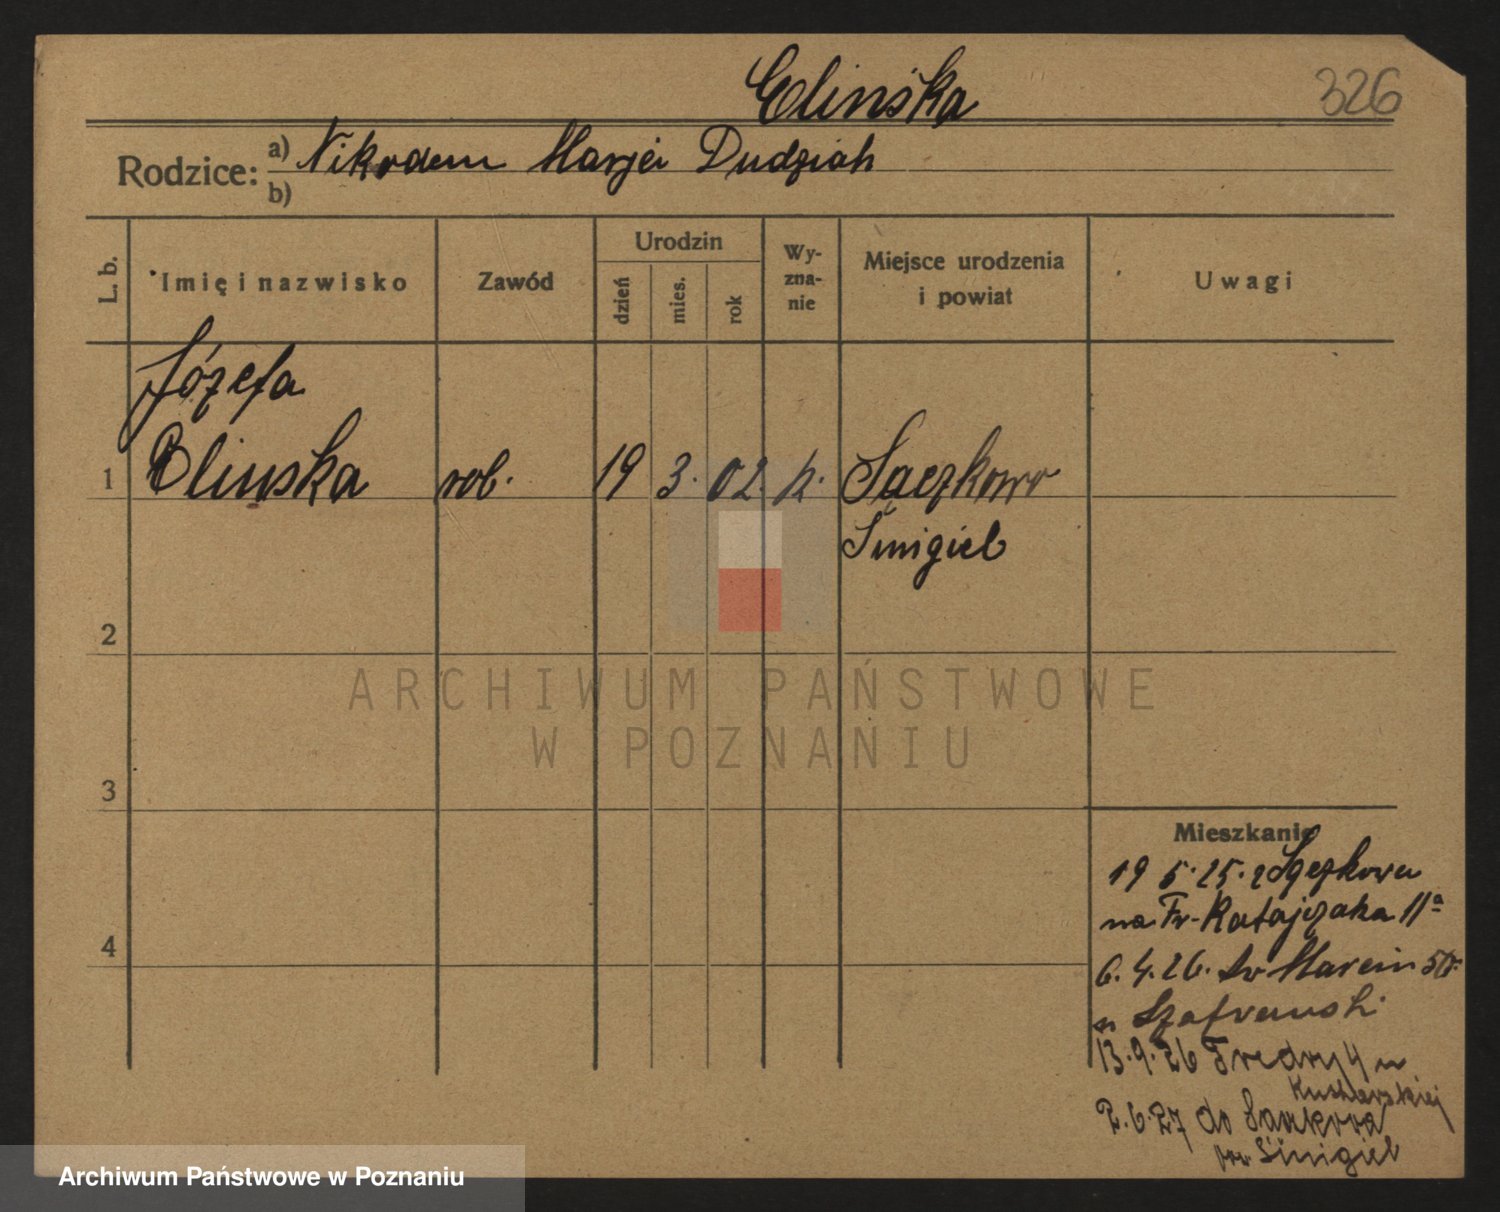 Olinska
326
Rodzice: a) Nikodem Maryei Dudziak
b)
L. b.
Imię i nazwisko
Zawód
Urodzin
dzień
mies.
rok
Wy-
zna-
nie
Miejsce urodzenia
i powiat
Uwagi
Józefa
1 Olinska rob. 19 3. 02. k. Sączkowo
Śmigiel
2
3
4
ARCHIWUM PAŃSTWOWE
W POZNANIU
Mieszkanie
19 5. 25. z
na Fr. Ratajczaka 11a
6. 4. 26. Św Marcin
Szafranski
13. 9. 26 Fredry 4
2. 6. 27 do
Śmigiel
Archiwum Państwowe w Poznaniu